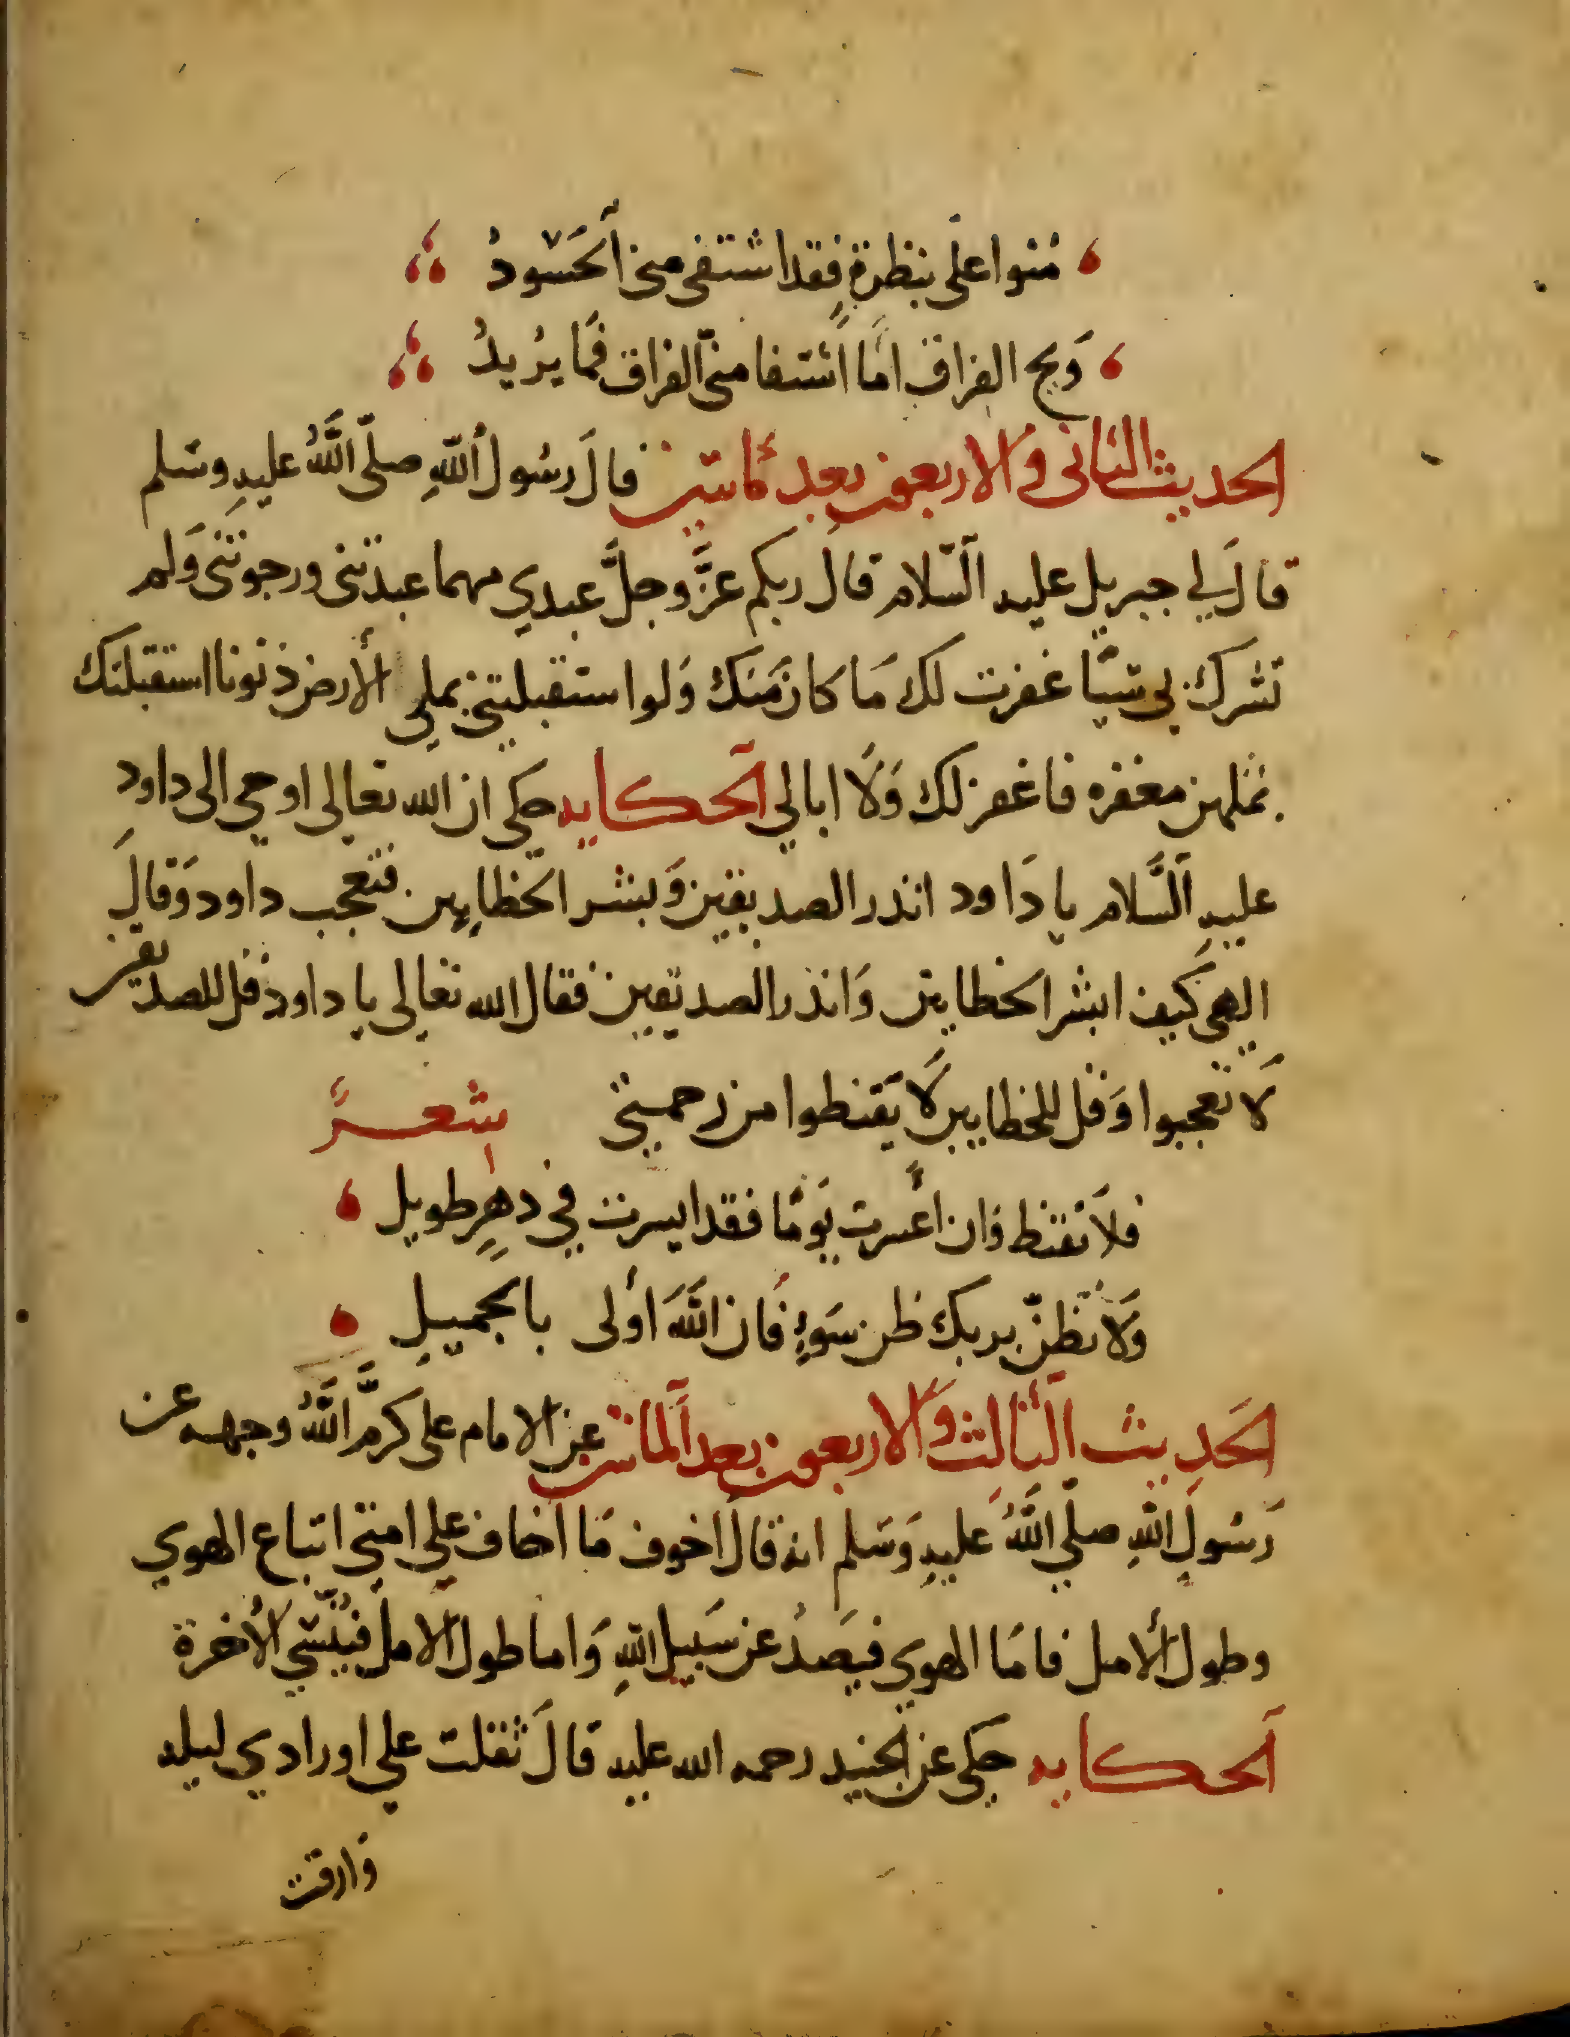 منوا علي بنظرة فقد اشتفى مني الحسود
ويح الفراق اما اشتفا مني الفراق فما يريد
الحديث الثاني والاربعون بعد مائتين قال رسول الله صلى الله عليه وسلم
قال لي جبريل عليه السلام قال ربكم عز وجل عبدي مهما عبدتني ورجوتني ولم
تشرك بي شيا غفرت لك ما كان منك ولو استقبلتني بملي الأرض ذنوبا استقبلتك
بمثلهن مغفره فاغفر لك ولا ابالي الحكايه حكي ان الله تعالى اوحي الى داود
عليه السلام يا داود انذر الصديقين وبشر الخطايين فتعجب داود وقال
الهي كيف ابشر الخطايين وانذر الصديقين فقال الله تعالى يا داود قل للصديقين
لا تعجبوا وقل للخطايين لا يقنطوا من رحمتي شعر
فلا تقنط فان اعسرت يوما فقد ايسرت في دهر طويل
ولا تظن بربك ظن سوء فان الله أولى بالجميل
الحديث الثالث والاربعون بعد المائتين عن الامام على كرم الله وجهه عن
رسول الله صلي الله عليه وسلم انه قال أخوف ما أخاف علي امتي اتباع الهوي
وطول الأمل فاما الهوي فيصد عن سبيل الله واما طول الامل فينسي الأخرة
الحكايه حكي عن الجنيد رحمه الله عليه قال ثقلت علي اورادي ليله
وارقت